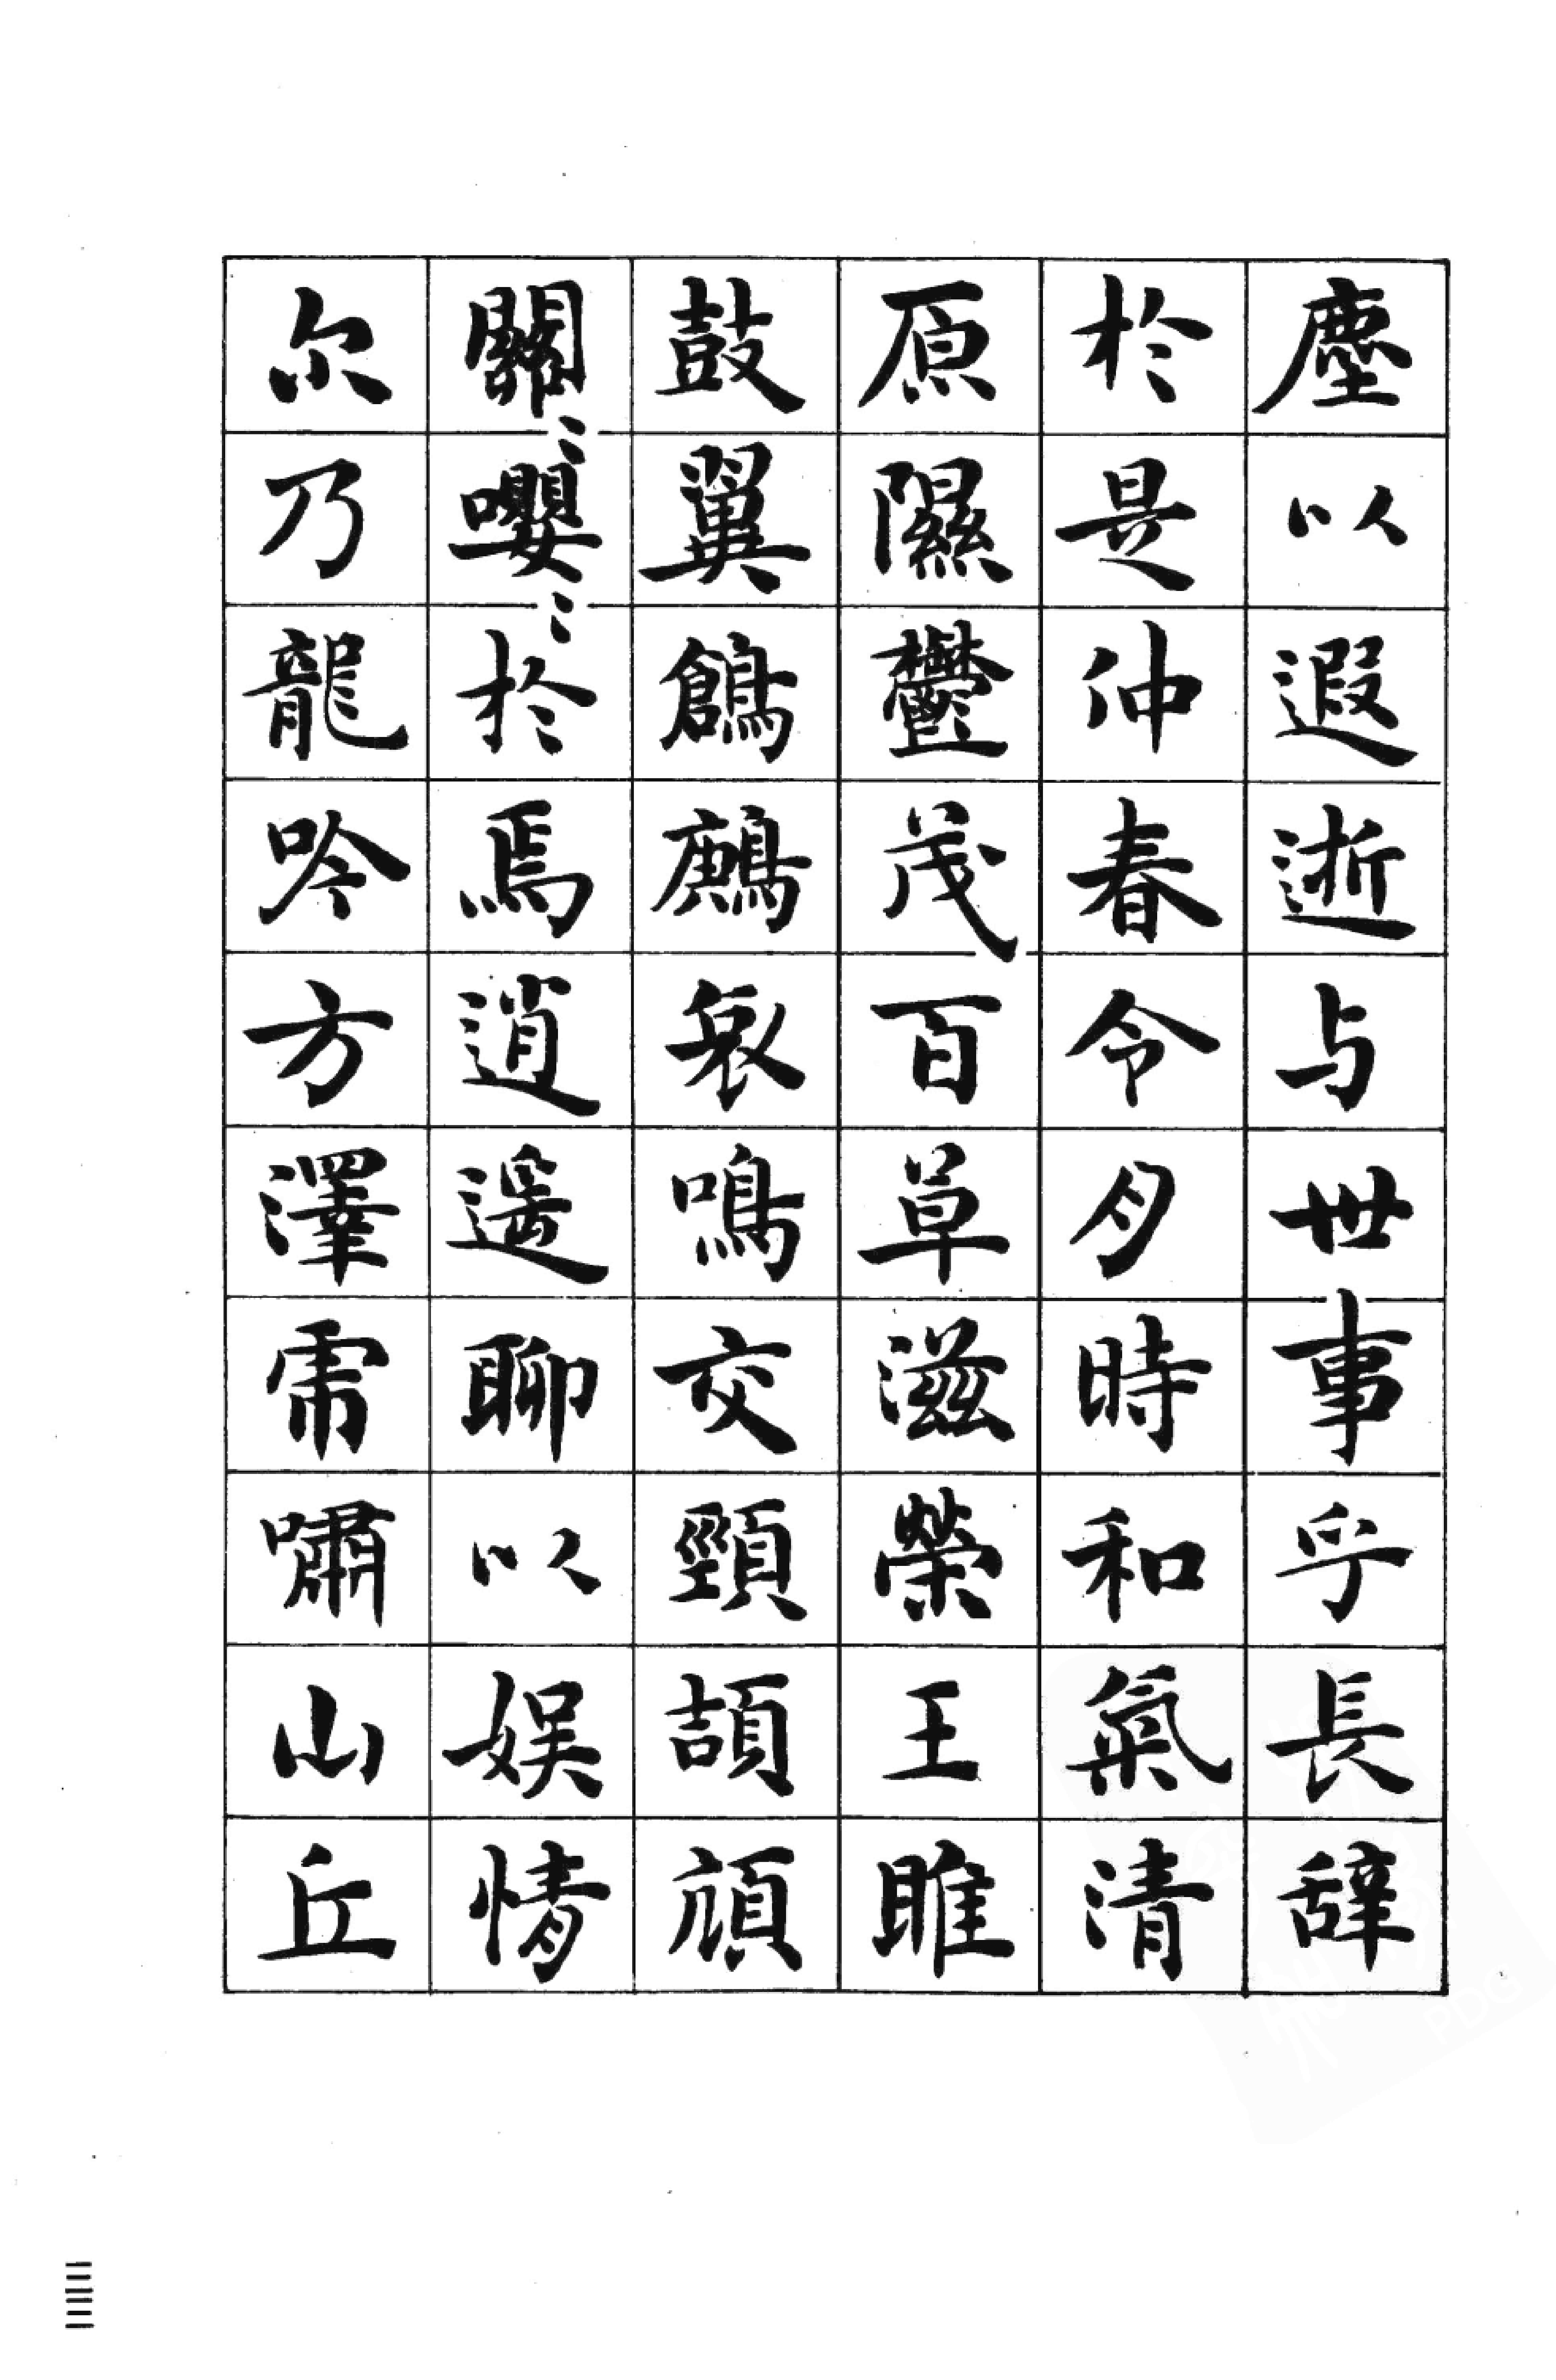 塵以遐逝与世事乎長辞
於是仲春令月時和氣清
原隰鬱茂百草滋榮王雎
鼓翼鶬鶊哀鳴交頸頡頏
關〻嚶〻於焉逍遥聊以娱情
尔乃龍吟方澤虎嘯山丘